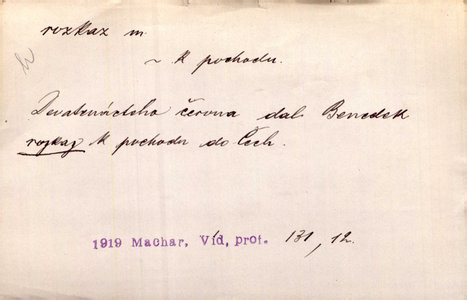 rozkaz m.
~ k pochodu.
Devatenáctého června dal Benedek
rozkaz k pochodu do Čech.
1919 Machar, Víd, prot. 131, 12.